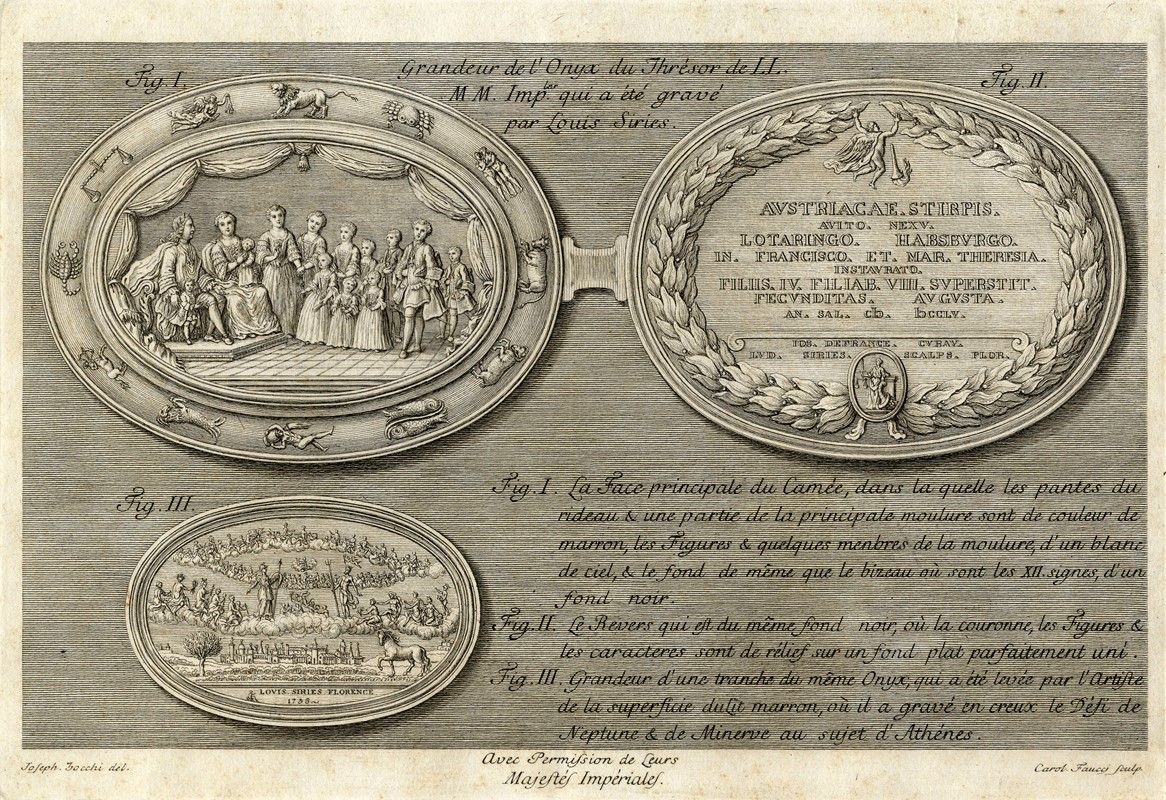 Fig. I.
Grandeur de l'Onyx du Thrésor de LL.
MM. Imples. qui a été gravé
par Louis Siries.
Fig. II.
AVSTRIACAE. STIRPIS.
AVITO. NEXV.
LOTARINGO. HABSBVRGO.
IN. FRANCISCO. ET. MAR. THERESIA.
INSTAVRATO.
FILIIS. IV. FILIAB. VIII. SVPERSTIT.
FECVNDITAS. AVGVSTA.
AN. SAL. CIƆ. IƆCCLV.
IOS. DEFRANCE. CVRAV.
LVD. SIRIES. SCALPS. FLOR.
Fig. III.
LOVIS. SIRIES FLORENCE
Fig. I. La Face principale du Camée, dans la quelle les pantes du
rideau & une partie de la principale moulure sont de couleur de
marron, les Figures & quelques menbres de la moulure, d'un blanc
de ciel, & le fond de même que le bizeau où sont les XII. signes, d'un
fond noir.
Fig. II. Le Revers qui est du même fond noir, où la couronne, les Figures &
les caracteres sont de rélief sur un fond plat parfaitement uni.
Fig. III. Grandeur d'une tranche du même Onyx, qui a été levée par l'Artiste
de la superficie dulit marron, où il a gravé en creux le Défi de
Neptune & de Minerve au sujet d'Athénes.
Joseph. Zocchi del.
Avec Permission de Leurs
Majestés Impériales.
Carol. Faucci sculp.